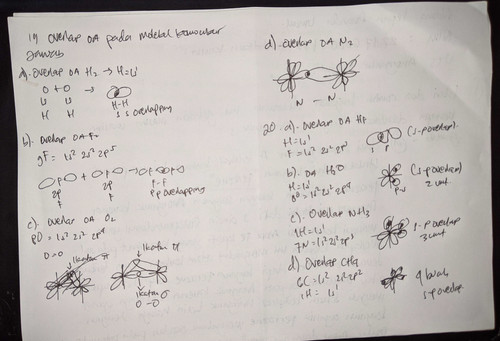 19 overlap OA pada molekul homonuklear
Jawab
a). overlap OA H2 → H=1s1
O + O →
1s 1s H-H
H H s s overlapping
b). overlap OA F2
9F = 1s2 2s2 2p5
+ →
2p 2p F-F
F F pp overlapping
c). overlap OA O2
8O = 1s2 2s2 2p4
O=O
ikatan π ikatan π
ikatan σ
O-O
d). overlap OA N2
N - N
20. a). overlap OA HF
H=1s1
F=1s2 2s2 2p5
s p
(s-p overlap)
b). OA H2O
H=1s1
8O=1s2 2s2 2p4
(s-p overlap)
2 unit
c). Overlap NH3
1H=1s1
7N=1s2 2s2 2p3
s-p overlap
3 unit
d). Overlap CH4
6C=1s2 2s2 2p2
1H= 1s1
s-p overlap